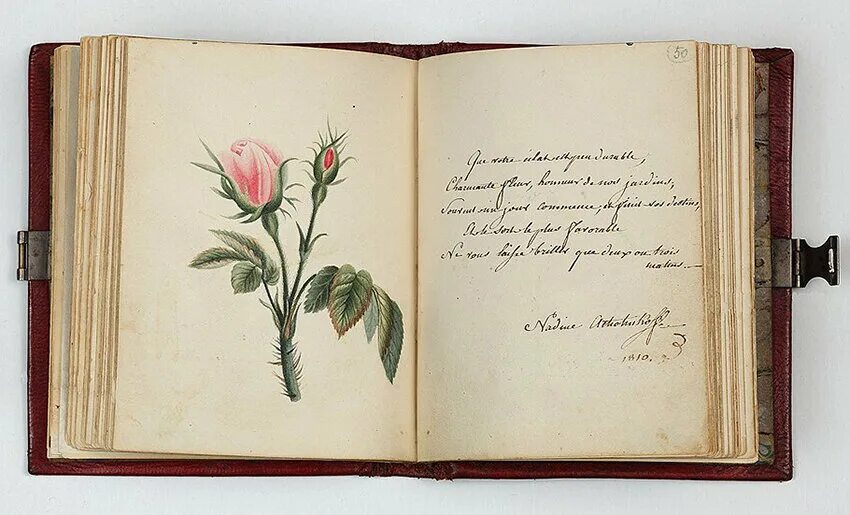 50
Que votre éclat est peu durable,
Charmante fleur, honneur de nos jardins,
Souvent un jour commence, et finit vos destins,
Et le sort le plus favorable
Ne vous laisse briller que deux ou trois
matins. —
Nadine
1810.